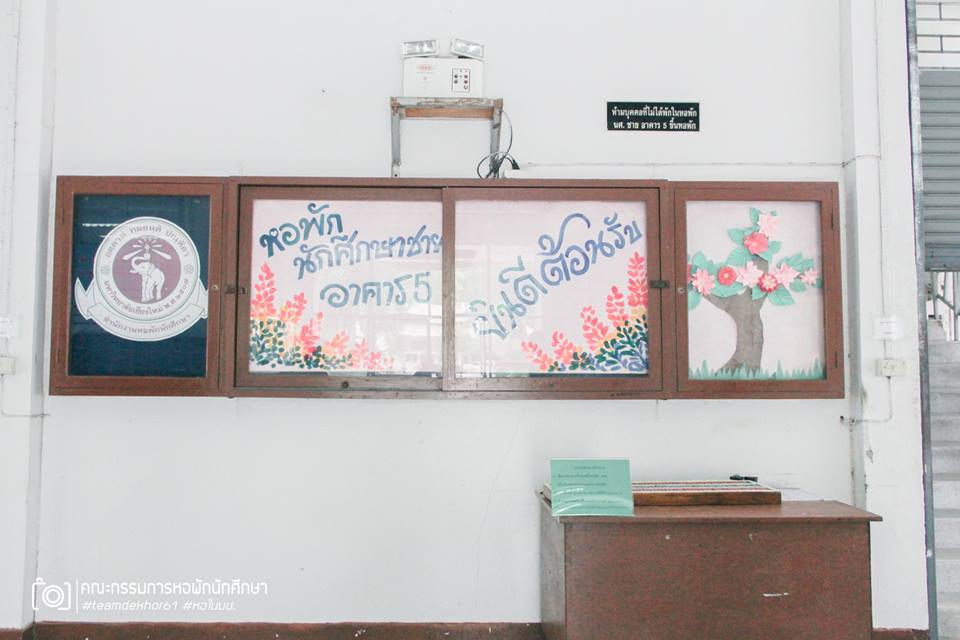 ห้ามบุคคลที่ไม่ได้พักในหอพัก
นศ. ชาย อาคาร 5 ขึ้นหอพัก
อตฺตานํ ทมยนฺติ ปณฺฑิตา
มหาวิทยาลัยเชียงใหม่ พ.ศ.๒๕๐๗
สำนักงานหอพักนักศึกษา
หอพัก
นักศึกษาชาย
อาคาร 5
ยินดีต้อนรับ
คณะกรรมการหอพักนักศึกษา
#teamdekhor61 #หอในมช.